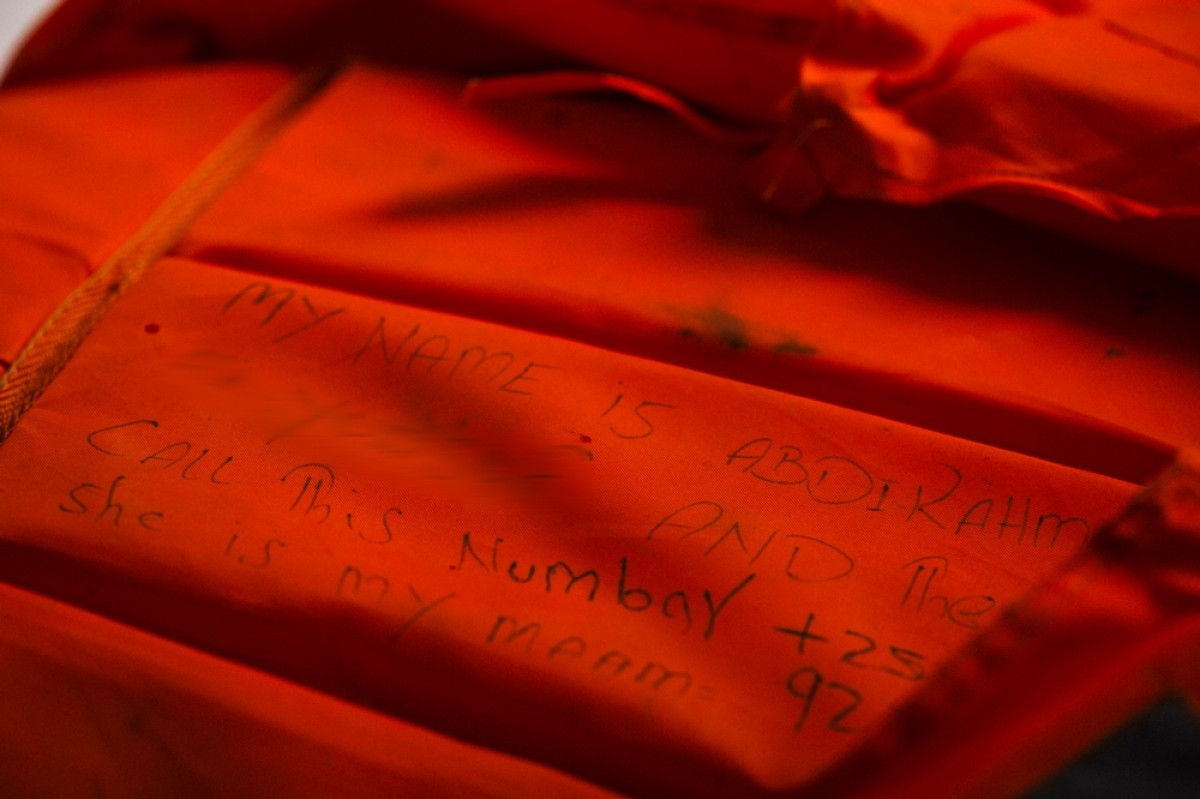 MY NAME iS ABDIRAHM
AND The
CALL This NumbaY +25
she is MY MAAM: 92